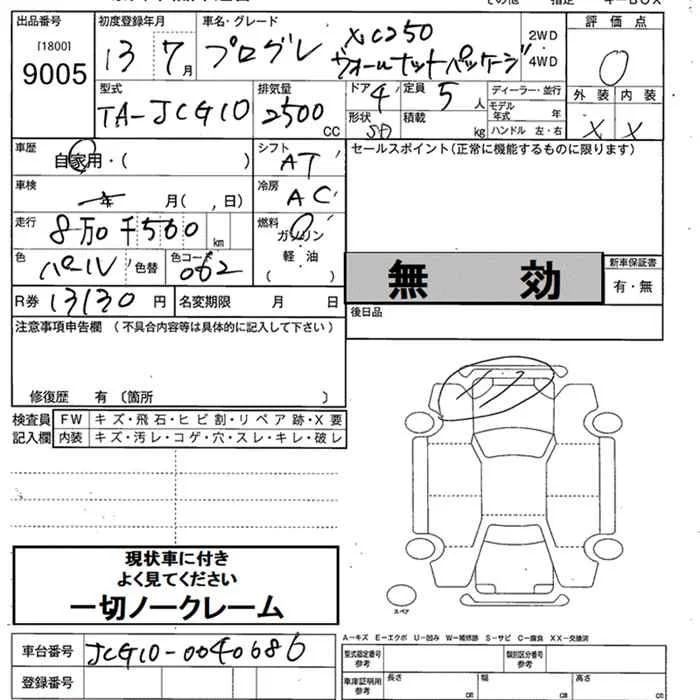 出品番号
[1800]
9005
初度登録年月
13 7月
車名・グレード
プログレ
NC250
ウォールナットパッケージ
2WD
4WD
評価点
0
型式
TA-JCG10
排気量
2500
CC
ドア
4
定員
5人
形状
SD
積載
kg
ディーラー・並行
モデル年式 年
ハンドル 左・右
外装 内装
X X
車歴
自家用・( )
シフト
AT
セールスポイント(正常に機能するものに限ります)
車検
年 月( , 日)
冷房
AC
走行
8万0千500 km
燃料
ガソリン
軽油
( )
色
パール 色替
色コード
062
無 効
新車保証書
有・無
R券 13130 円
名変期限 月 日
後日品
注意事項申告欄(不具合内容等は具体的に記入して下さい)
修復歴 有 〔箇所 〕
検査員
記入欄
FW キズ・飛石・ヒビ割・リペア跡・X要
内装 キズ・汚レ・コゲ・穴・スレ・キレ・破レ
現状車に付き
よく見てください
一切ノークレーム
スペア
A-キズ E-エクボ U-凹み W-補修跡 S-サビ C-腐食 XX-交換済
車台番号 JCG10-0040686
型式指定番号
参考
類別区分番号
参考
登録番号
車庫証明用
参考
長さ cm
幅 cm
高さ cm